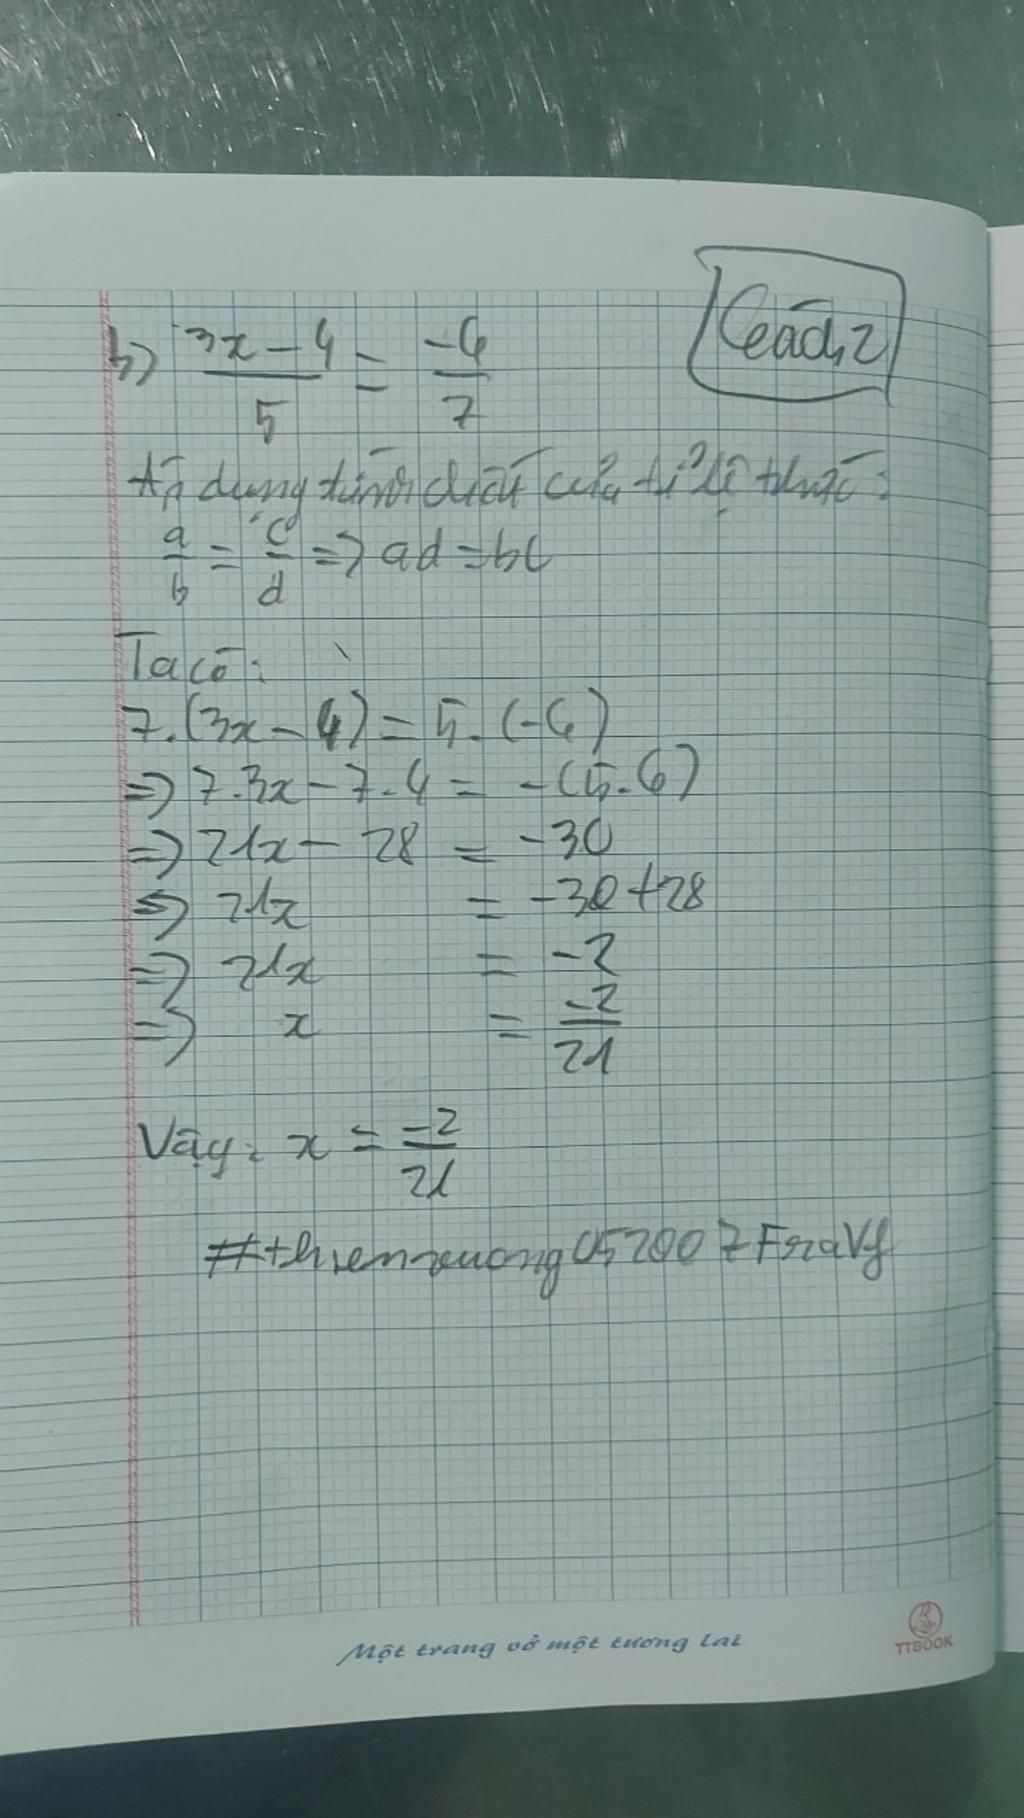 b) (3x-4)/5 = -6/7
Cách 2
Áp dụng tính chất của tỉ lệ thức:
a/b = c/d => ad = bc
Ta có:
7.(3x-4) = 5.(-6)
=> 7.3x - 7.4 = -(5.6)
=> 21x - 28 = -30
=> 21x = -30+28
=> 21x = -2
=> x = -2/21
Vậy: x = -2/21
Một trang vở một tương lai
TTBOOK